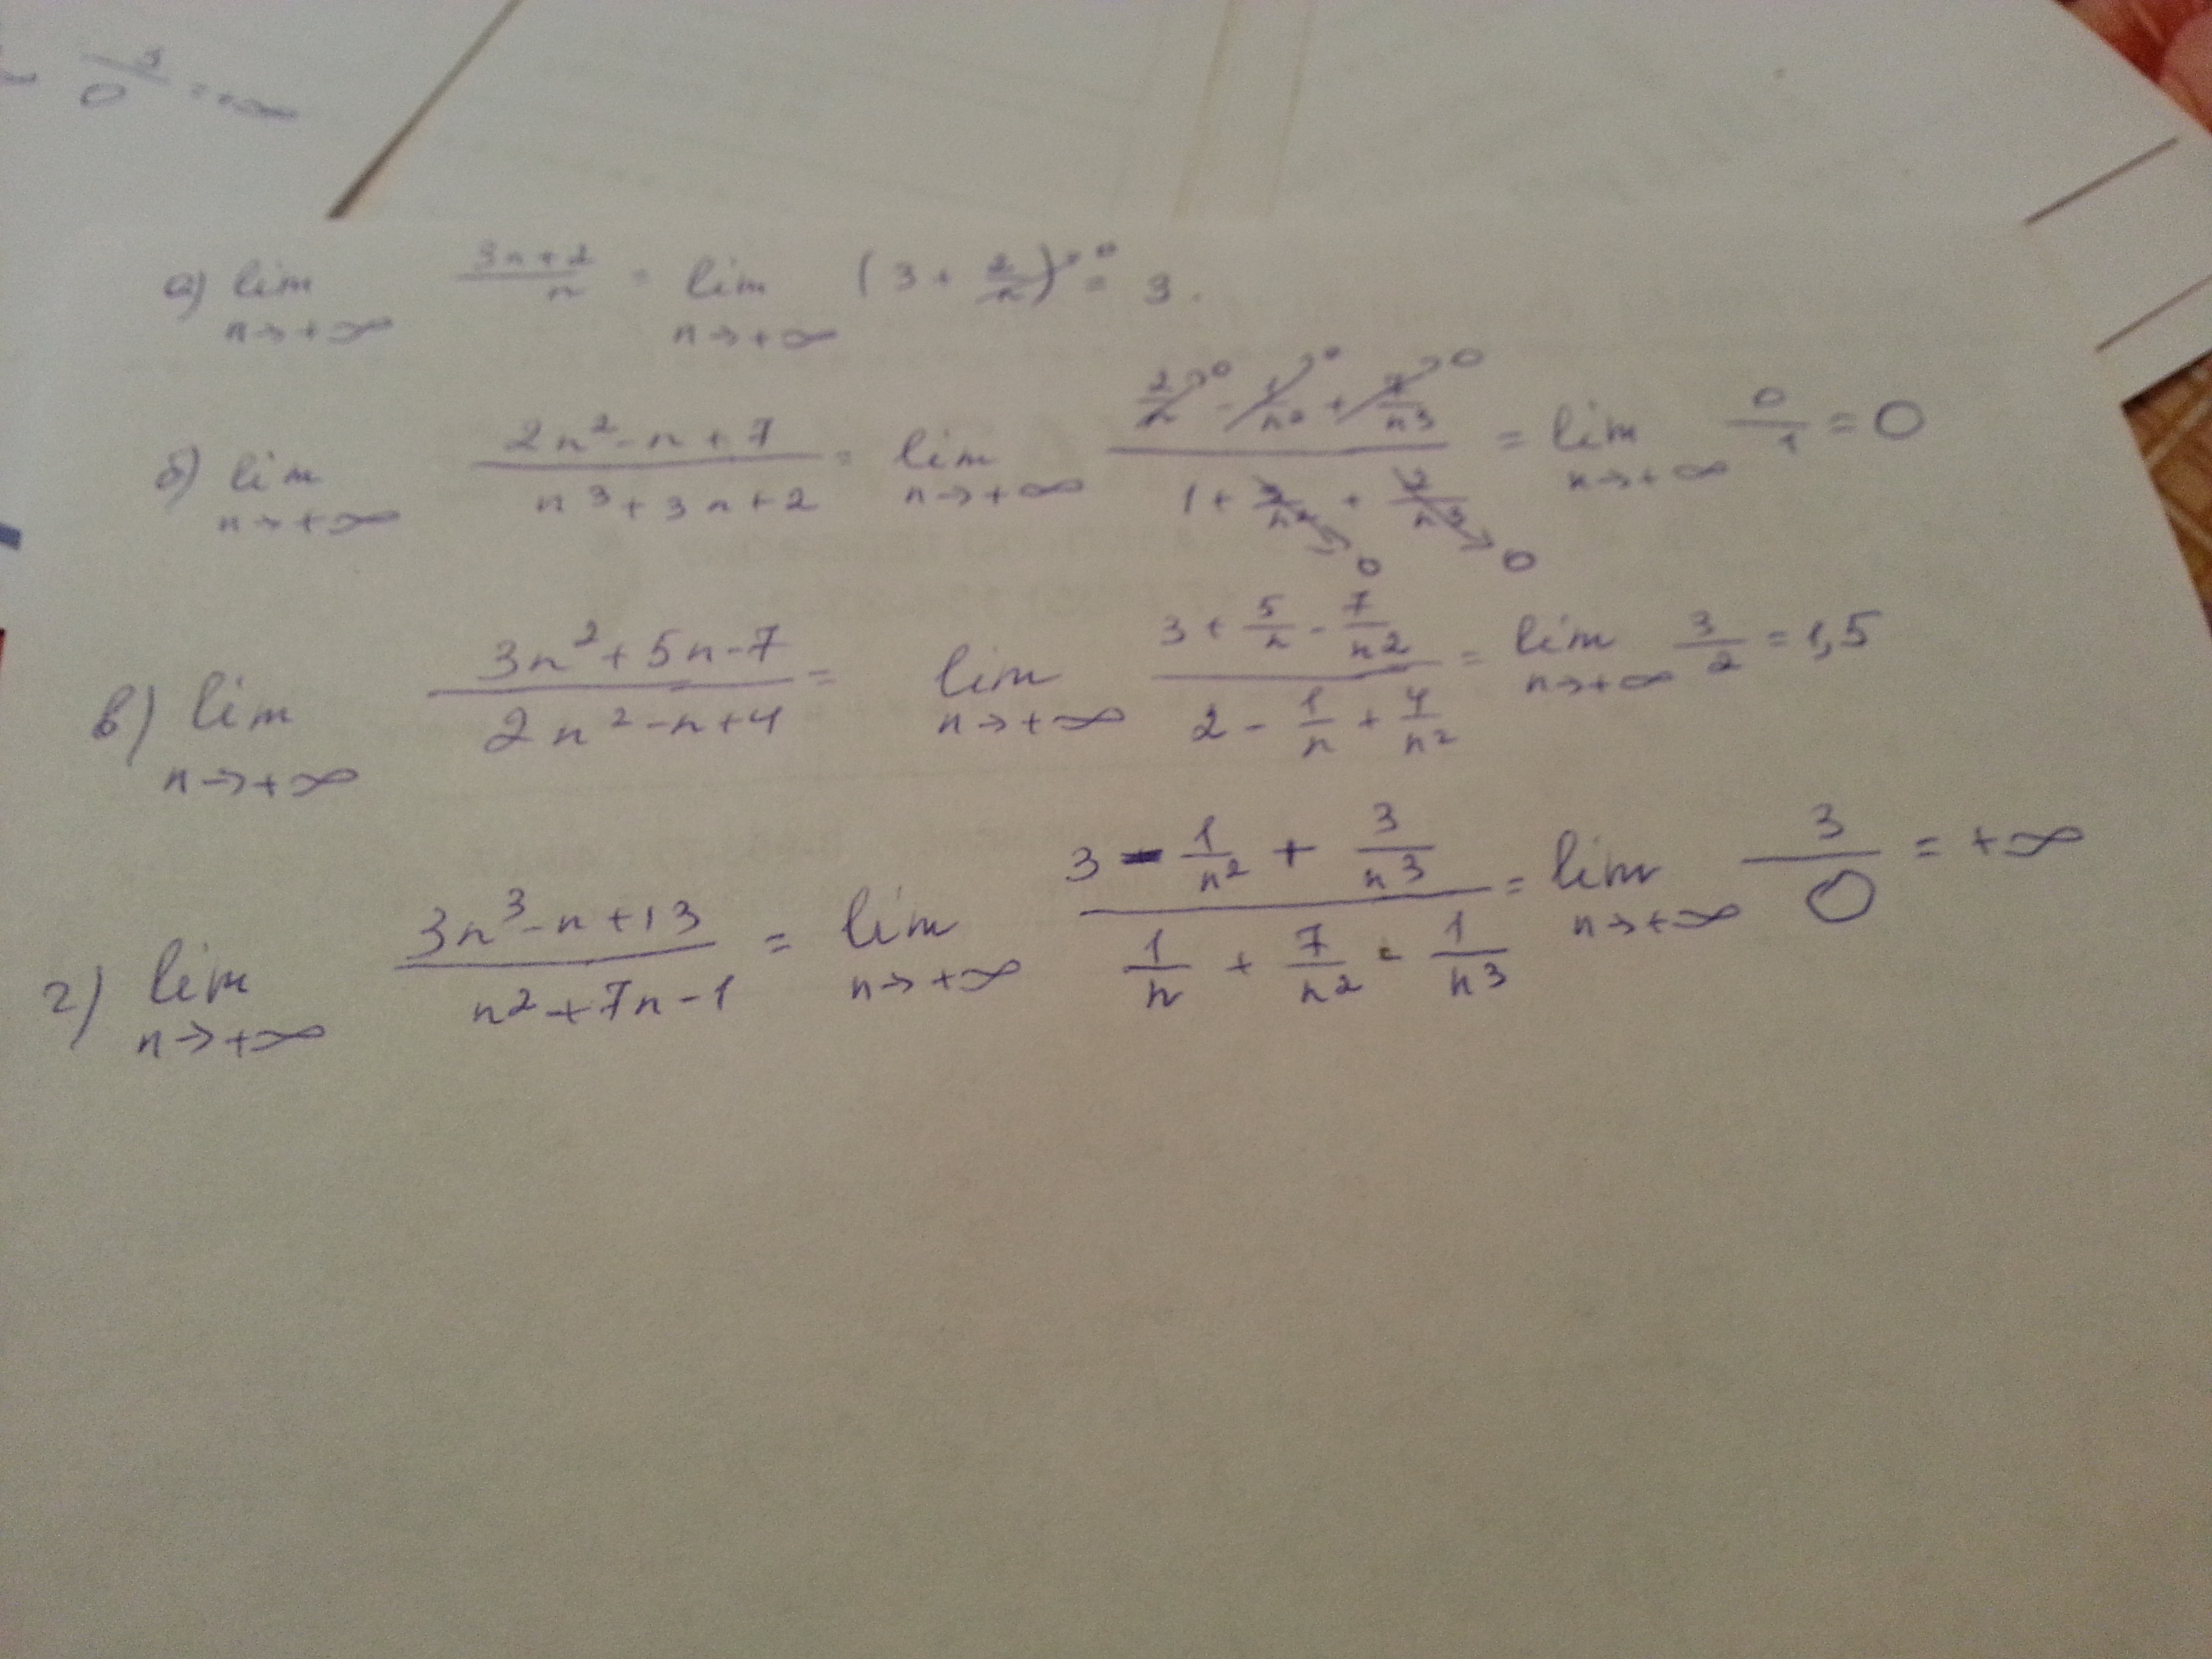 3/0 = +∞
а) lim n→+∞ (3n+2)/n = lim n→+∞ (3 + 2/n)→0 = 3.
б) lim n→+∞ (2n²-n+7)/(n³+3n+2) = lim n→+∞ (2/n→0 - 1/n²→0 + 7/n³→0)/(1 + 3/n²→0 + 2/n³→0) = lim n→+∞ 0/1 = 0
в) lim n→+∞ (3n²+5n-7)/(2n²-n+4) = lim n→+∞ (3 + 5/n - 7/n²)/(2 - 1/n + 4/n²) = lim n→+∞ 3/2 = 1,5
г) lim n→+∞ (3n³-n+13)/(n²+7n-1) = lim n→+∞ (3 - 1/n² + 3/n³)/(1/n + 7/n² - 1/n³) = lim n→+∞ 3/0 = +∞